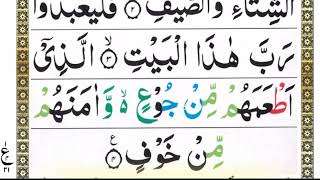 الشِّتَآءِ وَالصَّيْفِ ۝٢ فَلْيَعْبُدُوْا
رَبَّ هٰذَا الْبَيْتِ ۝٣ الَّذِیْۤ
اَطْعَمَهُمْ مِّنْ جُوْعٍ ۙ۬ وَّاٰمَنَهُمْ
مِّنْ خَوْفٍ ۝٤
ع
٣١